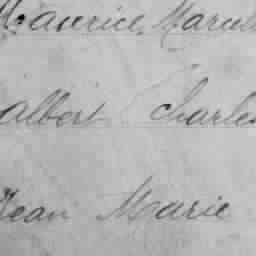 Maurice, Marcel
albert Charles
Jean Marie